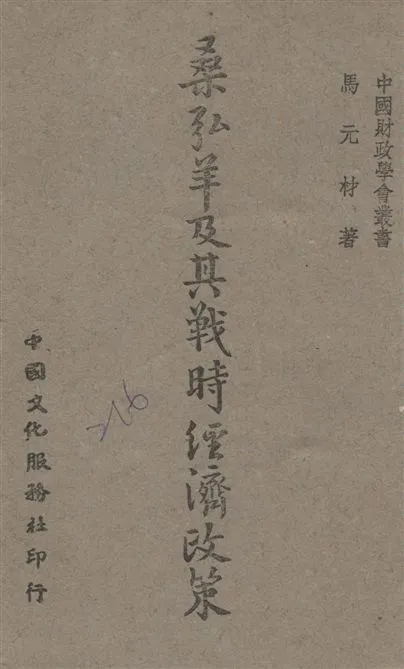 中國財政學會叢書
馬元材著
桑弘羊及其戰時經濟政策
中國文化服務社印行